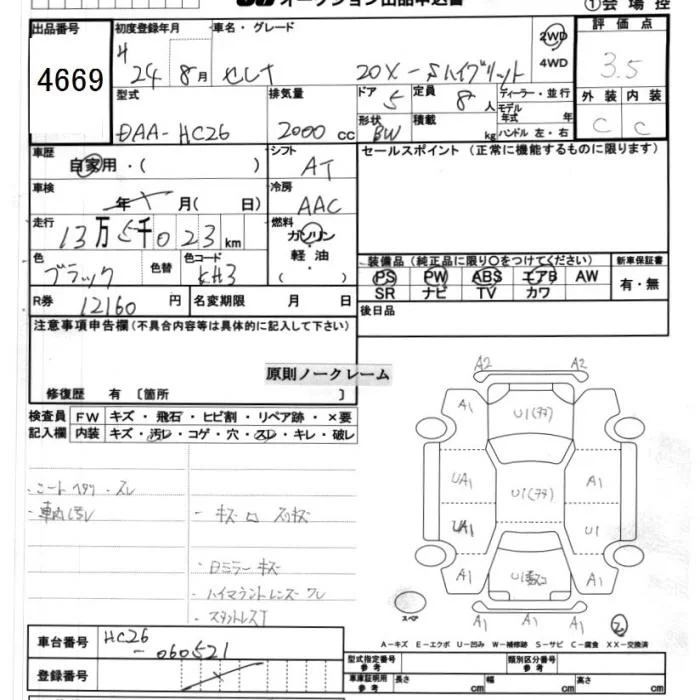 オークション出品申込書
① 会場控
出品番号
4669
初度登録年月
H 24 8月
車名・グレード
セレナ 20X-Sハイブリット
2WD
4WD
評価点
3.5
型式
DAA-HC26
排気量
2000 cc
ドア 5
定員 8人
ディーラー・並行
形状 BW
積載 kg
モデル年式 年
ハンドル 左・右
外装 内装
C C
車歴
自家用・( )
シフト
AT
セールスポイント(正常に機能するものに限ります)
車検
年 月(日)
冷房
AAC
走行
13万5千023km
燃料
ガソリン
軽油
( )
色
ブラック
色替
色コード
KH3
装備品(純正品に限り○をつけてください)
新車保証書
PS PW ABS エアB AW
SR ナビ TV カワ
有・無
R券 12160円
名変期限 月 日
後日品
注意事項申告欄(不具合内容等は具体的に記入して下さい)
原則ノークレーム
修復歴 有 〔箇所 〕
検査員記入欄
FW キズ・飛石・ヒビ割・リペア跡・×要
内装 キズ・汚レ・コゲ・穴・スレ・キレ・破レ
シートヘタリ・スレ
- 車内汚レ
- キズ
- ドミラーキズ
- ハイマウントレンズワレ
- スタットレスT
A2 A2
A1 U1(フタ) A1
UA1 A1
U1(フタ)
UA1 U1
A1 A1
A1 A1 A1
スペア
A-キズ E-エクボ U-凹み W-補修跡 S-サビ C-腐食 XX-交換済
車台番号
HC26
-060521
登録番号
型式指定番号参考
類別区分番号参考
車庫証明用参考
長さ cm
幅 cm
高さ cm